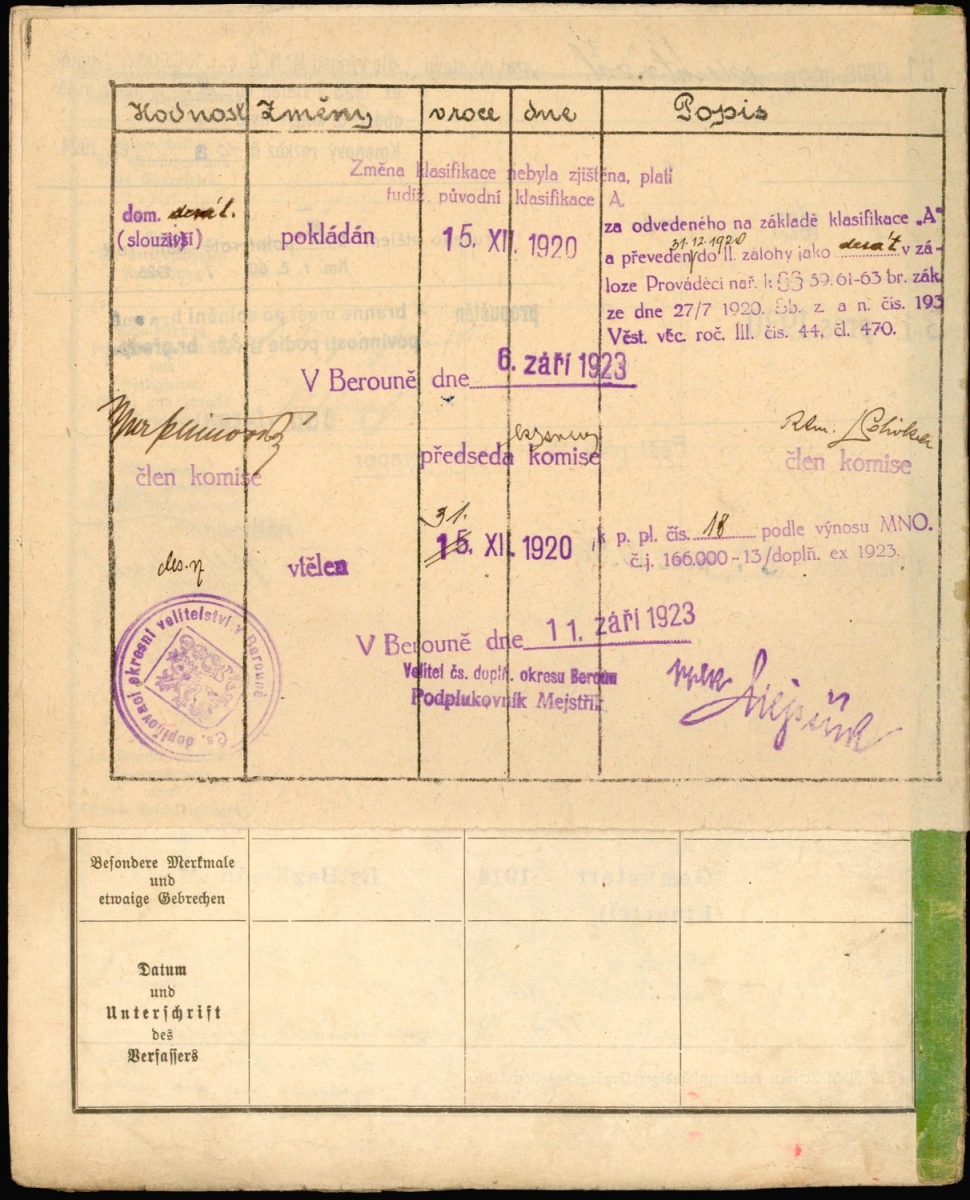 Hodnost Změny v roce dne Popis
Změna klasifikace nebyla zjištěna, platí
tudíž původní klasifikace A.
dom. desát.
(slouživší)
pokládán
15. XII. 1920
za odvedeného na základě klasifikace „A“
31.12.1920
a převeden do II. zálohy jako desát v zá-
loze Prováděcí nař. k §§ 59. 61-63 br. zák.
ze dne 27/7 1920. Sb. z. a n. čís. 193
Věst. věc. roč. III. čís. 44. čl. 470.
V Berouně dne 6. září 1923
člen komise
předseda komise
Rtm.
člen komise
des. v
vtělen
31.
15. XII. 1920
k p. pl. čís. 18 podle výnosu MNO.
č.j. 166.000-13/doplň. ex 1923.
V Berouně dne 11. září 1923
Velitel čs. doplň. okresu Beroun
Podplukovník Mejstřík.
pplk Mejstřík
Čs. doplňovací okresní velitelství v Berouně
Besondere Merkmale
und
etwaige Gebrechen
Datum
und
Unterschrift
des
Verfassers